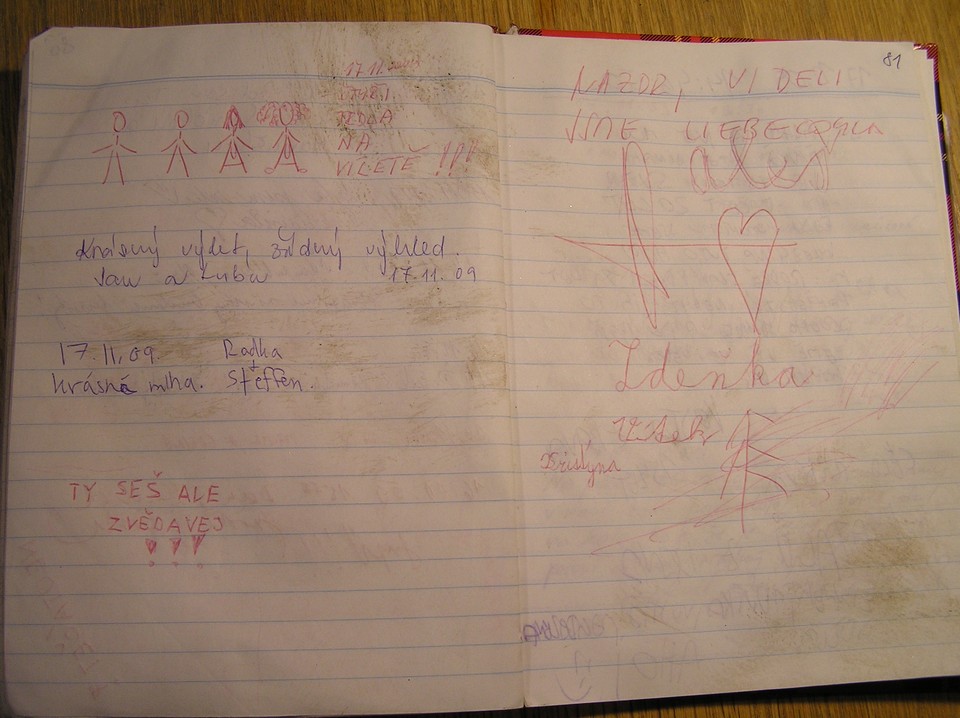 17.11.
JEDLA
NA
VÝLETĚ !!!
Krásný výlet, žádný výhled.
Jan a Luba 17.11.09
17.11.09 Radka
+
krásná mlha. Steffen.
TY SEŠ ALE
ZVĚDAVEJ
!!!
81
NAZDR, VIDELI
JSME
Aleš
Zdeňka
Vítek
Kristýna